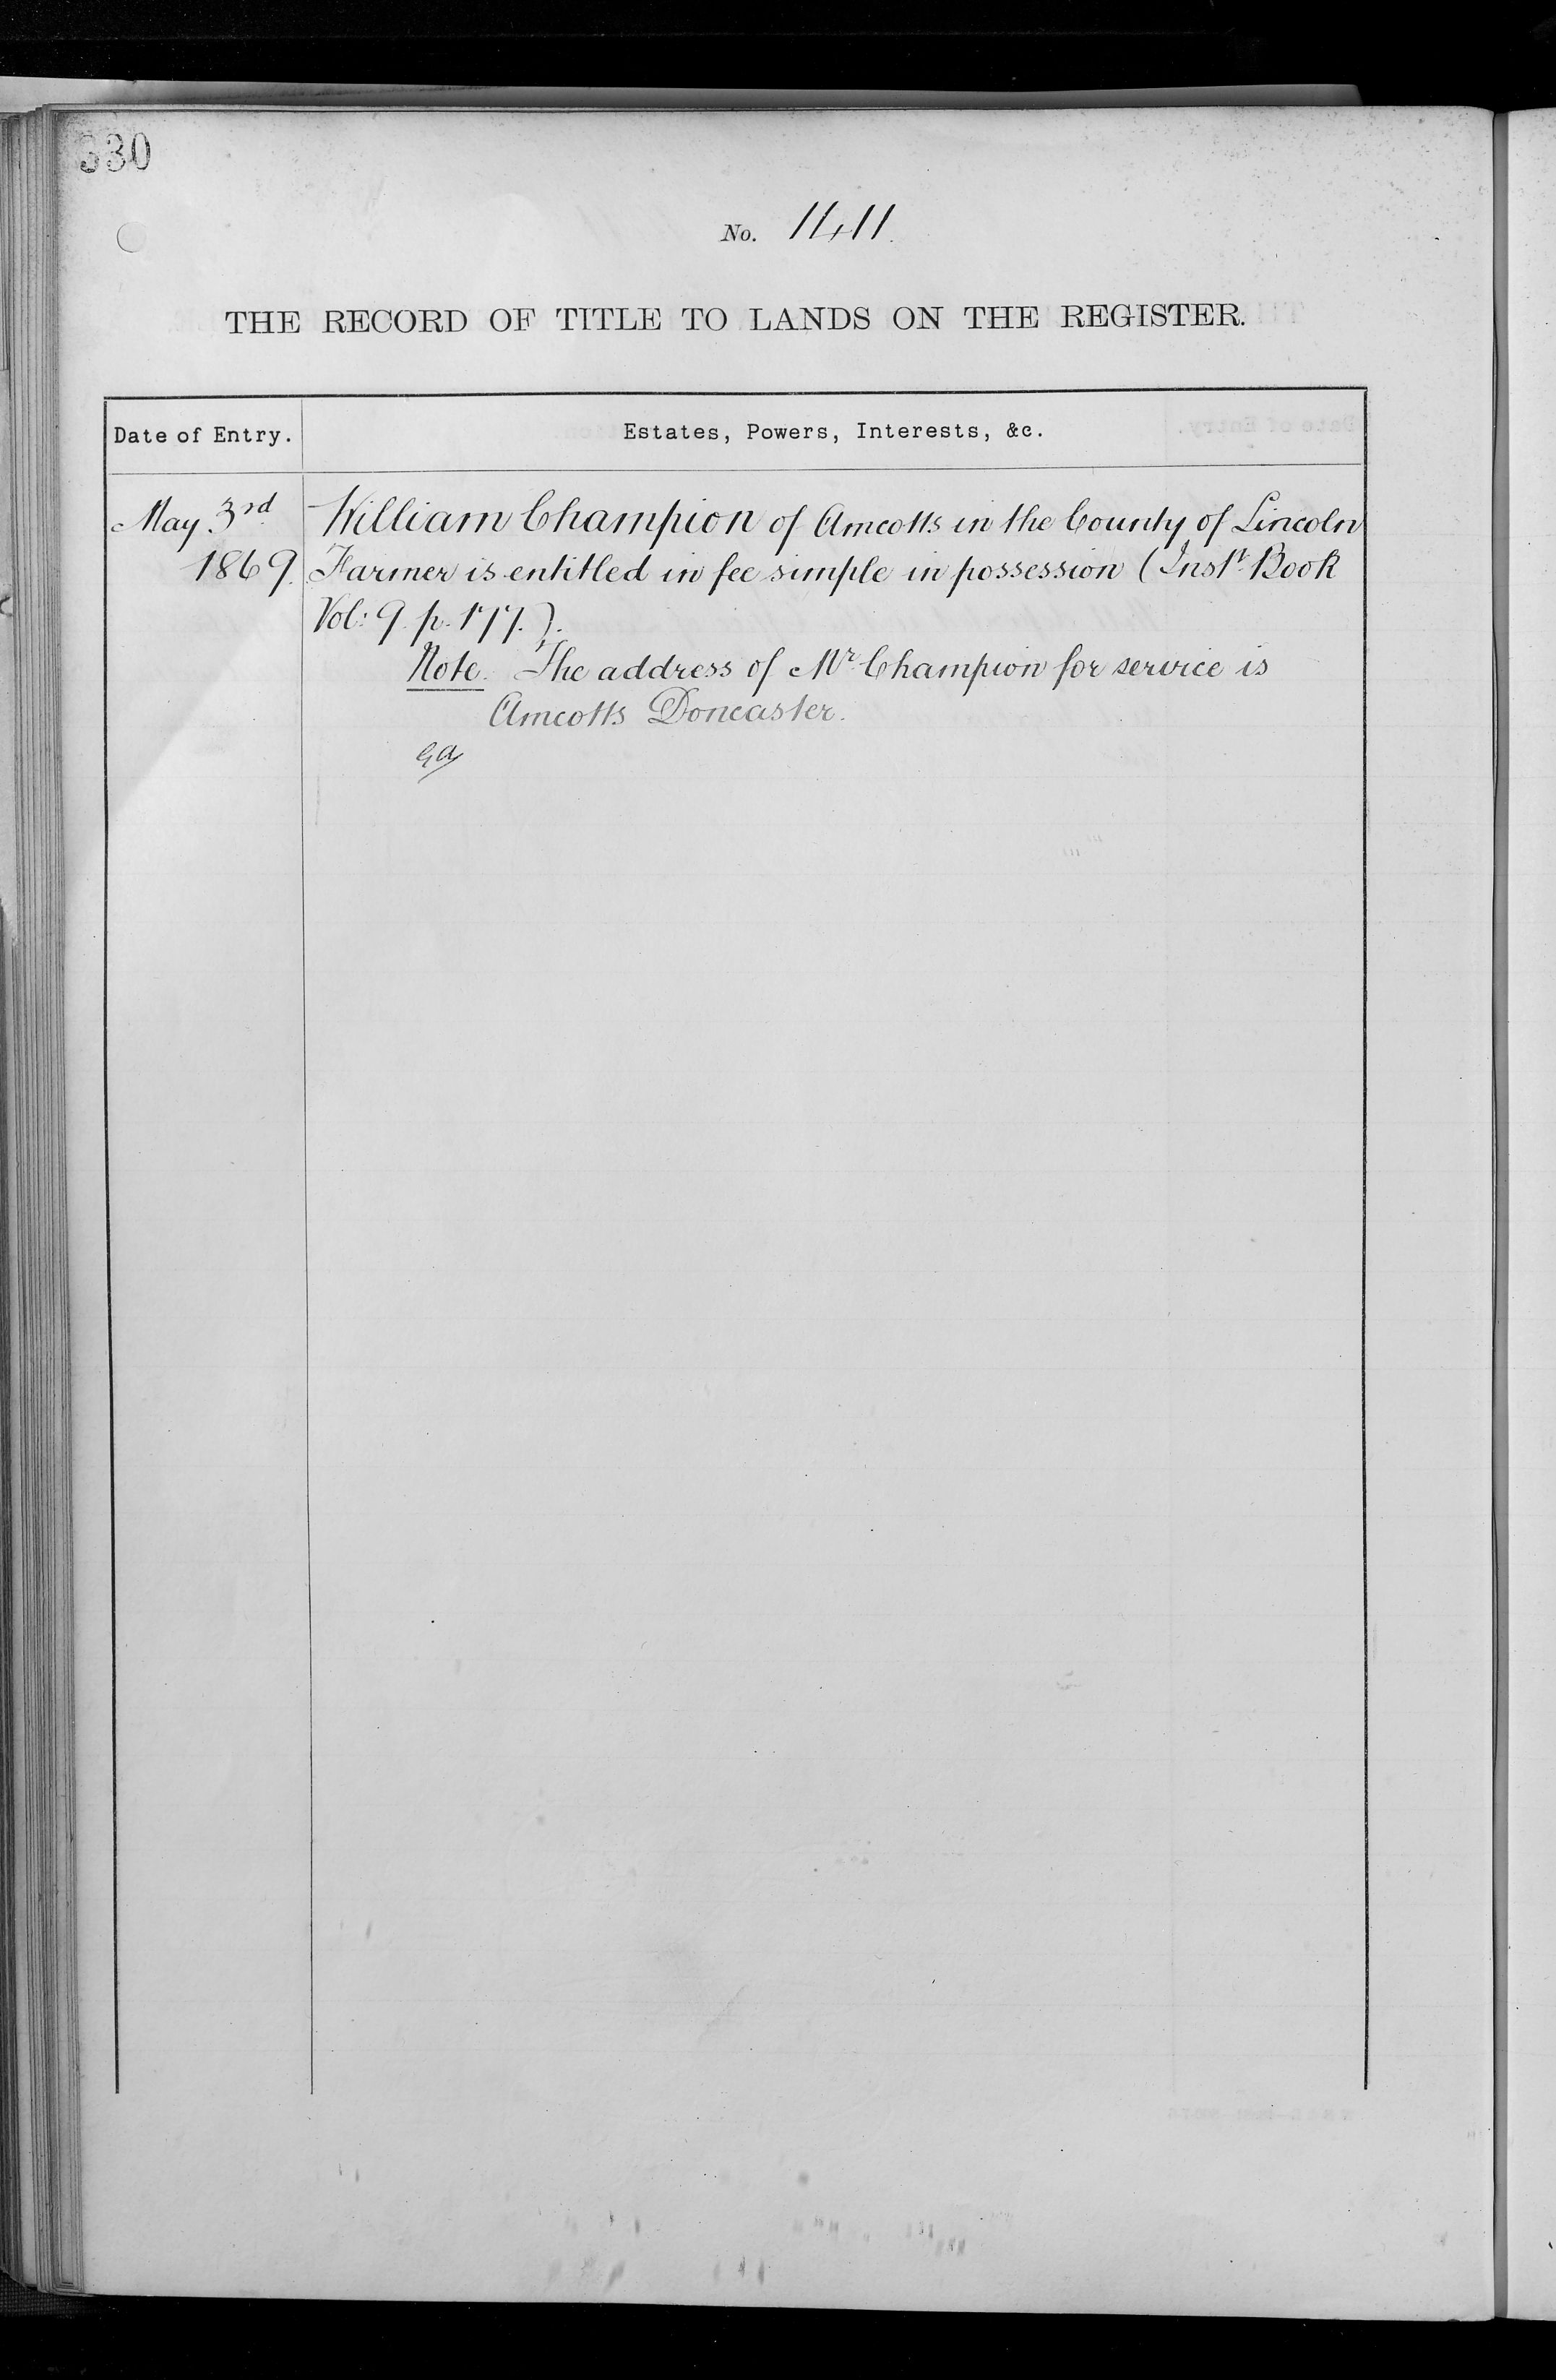 330
No. 1411.
THE RECORD OF TITLE TO LANDS ON THE REGISTER.
Date of Entry.
Estates, Powers, Interests, &c.
May 3rd
1869.
William Champion of Amcotts in the County of Lincoln
Farmer is entitled in fee simple in possession (Inst. Book
Vol: 9. p. 177.).
Note. The address of Mr. Champion for service is
Amcotts Doncaster.